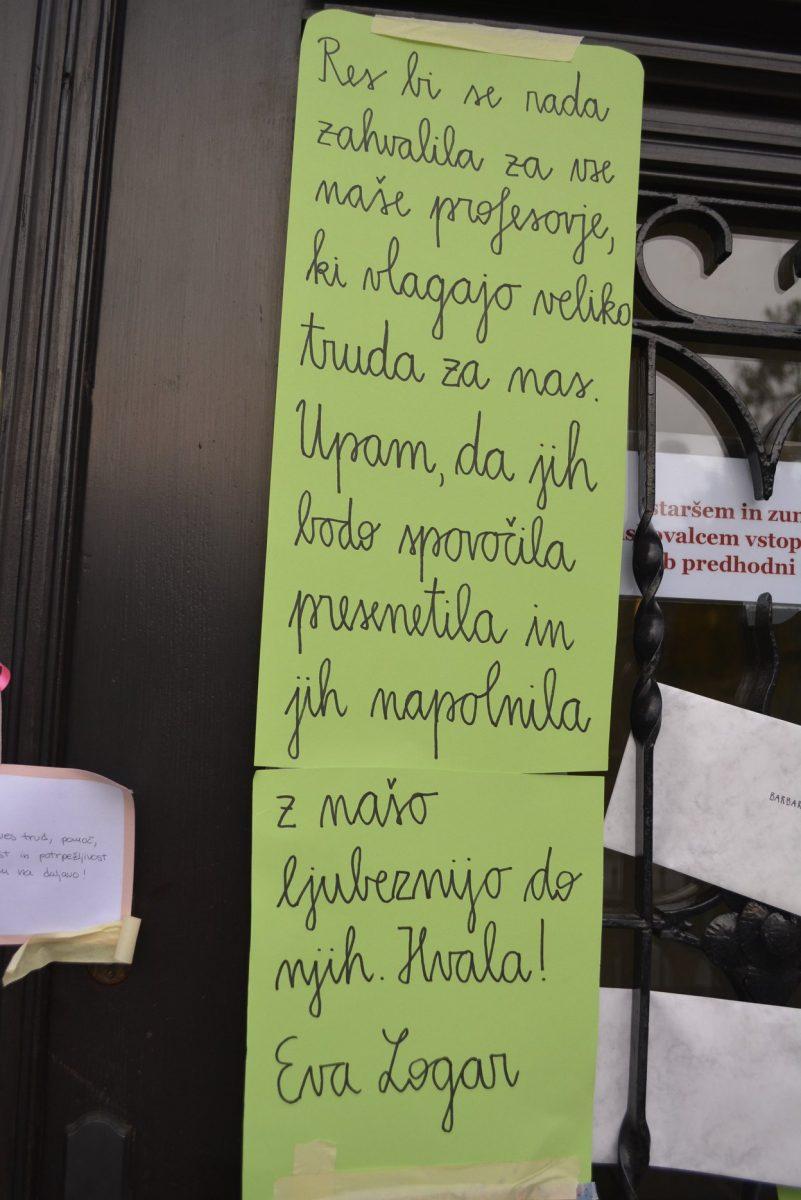 Res bi se rada
zahvalila za vse
naše profesorje,
ki vlagajo veliko
truda za nas.
Upam, da jih
bodo sporočila
presenetila in
jih napolnila
z našo
ljubeznijo do
njih. Hvala!
Eva Logar
staršem in zun
ovalcem vstop
b predhodni
ves trud, pomoč,
st in potrpežljivost
na daljavo!
BARBAR